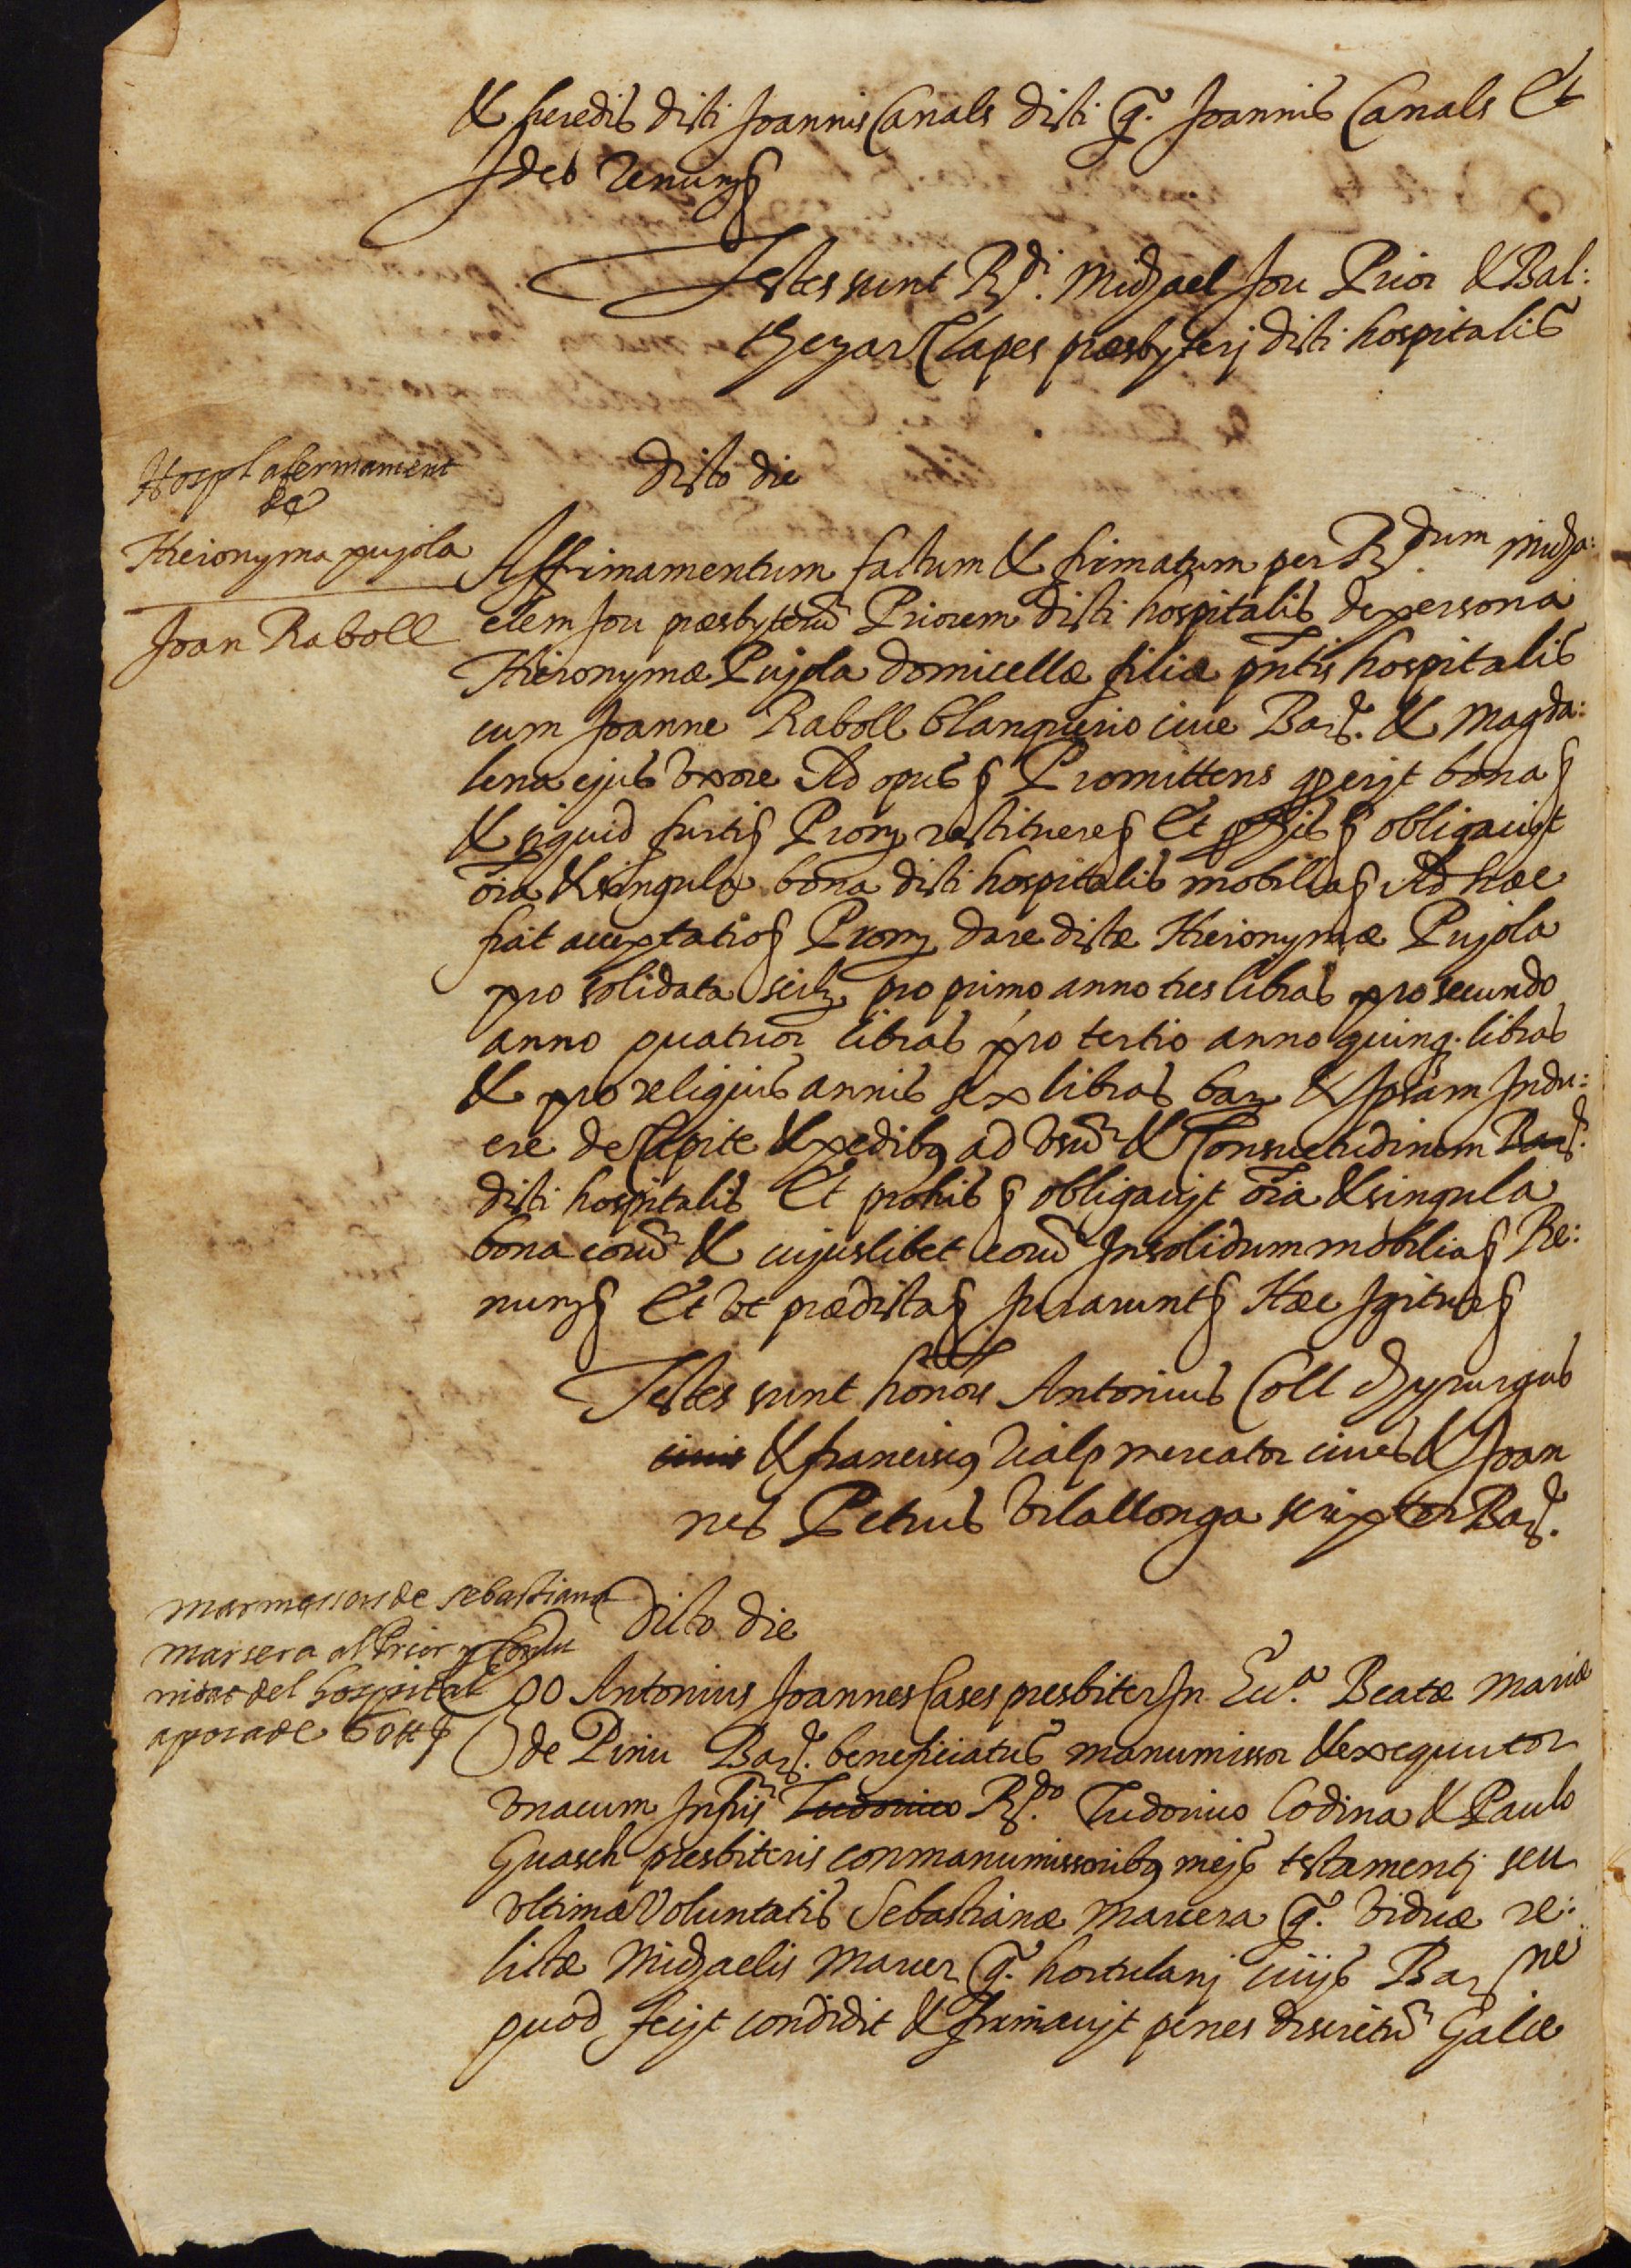 & heredis dicti Joannis Canals dicti q.º Joannis Canals Et
Ideo Renun§
Testes sunt R.di Michael Jou Prior & Bal:
thezar Clapes præsbyterj dicti hospitalis
Hospl afermament
de
Hieronyma pujola
Joan Raboll
dicto die
Affirmamentum factum & firmatum per R.dum Micha:
elem Jou præsbyterũ Priorem dicti hospitalis de persona
Hieronymæ Pujola domicellæ filiæ pntis hospitalis
cum Joanne Raboll blanquerio ciue Bar. & Magda:
lena ejus vxore Ad opus § Promittens q erit bona §
& siquid furti§ Prom restituere§ Et pro his § obligauit
oĩa & singula bona dicti hospitalis mobilia§ Ad hæc
fiat acceptatio§ Prom dare dictæ Hieronymæ Pujola
pro solidata scilz pro primo anno tres libras pro secundo
anno quatuor libras pro tertio anno quinq. libras
& pro reliquis annis sex libras bar & Ipsam Indu:
ere de Capite & pedibq ad vsũ & Consuetudinem Bar.
dicti hospitalis Et pro his § obligauit oĩa & singula
bona eorũ & cujuslibet eorũ Insolidum mobilia§ Re:
nun§ Et vt prædicta§ Jurarunt§ Hæc Igitur§
Testes sunt honors Antonius Coll chyrurgus
ciuis & franciscq Vialp mercator ciues & Joan
nes Petrus Vilallonga scriptor Bar.
Marmessors de Sebastiana
Marsera al Prior y Comu
nitat del hospital
apoca de 60 ₶ §
Dicto die
EGo Antonius Joannes Cases presbiter In Ecc.ª Beatæ Mariæ
de Pinu Bar. beneficiatus manumissor & exequutor
vnacum Infris Ludouico R.do Ludouico Codina & Paulo
Guasch presbiteris conmanumissoribq mejs testamentj seu
vltimæ Voluntatis Sebastianæ Marcera q.º viduæ re:
lictæ Michaelis Marcer q.º hortulanj ciuis Bar ne
quod fecit condidit & firmauit penes discretũ Galce